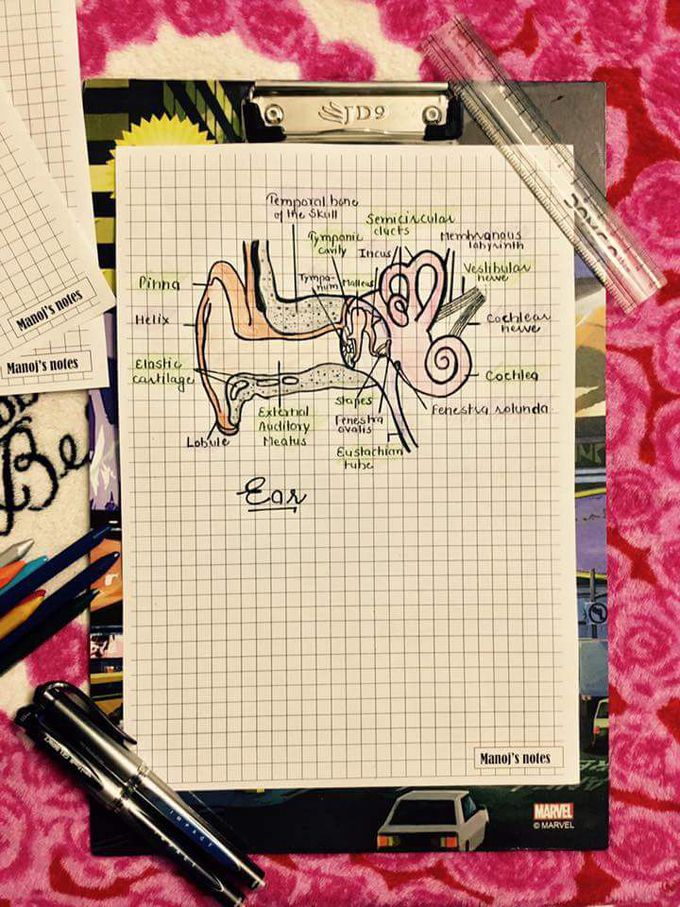 JD9
Temporal bone
of the Skull
Semicircular
ducts
Tympanic
cavity
Membranous
labyrinth
Incus
Vestibular
nerve
Tympa-
num
Malleus
Pinna
Helix
Cochlear
nerve
Elastic
cartilage
Cochlea
Stapes
Fenestra
ovalis
Fenestra rotunda
External
Auditory
Meatus
Lobule
Eustachian
tube
Ear
Manoj's notes
Manoj's notes
Be
Manoj's notes
MARVEL
© MARVEL